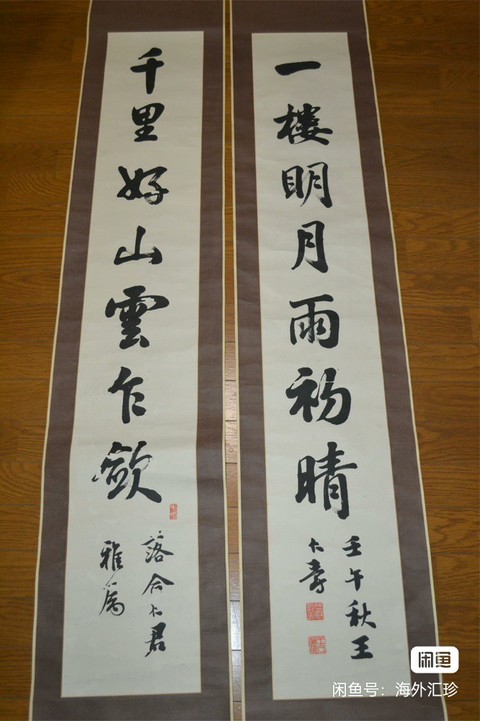 千里好山雲乍歛
落合君
雅属
一樓明月雨初晴
壬午秋王
壽
闲鱼
闲鱼号：海外汇珍